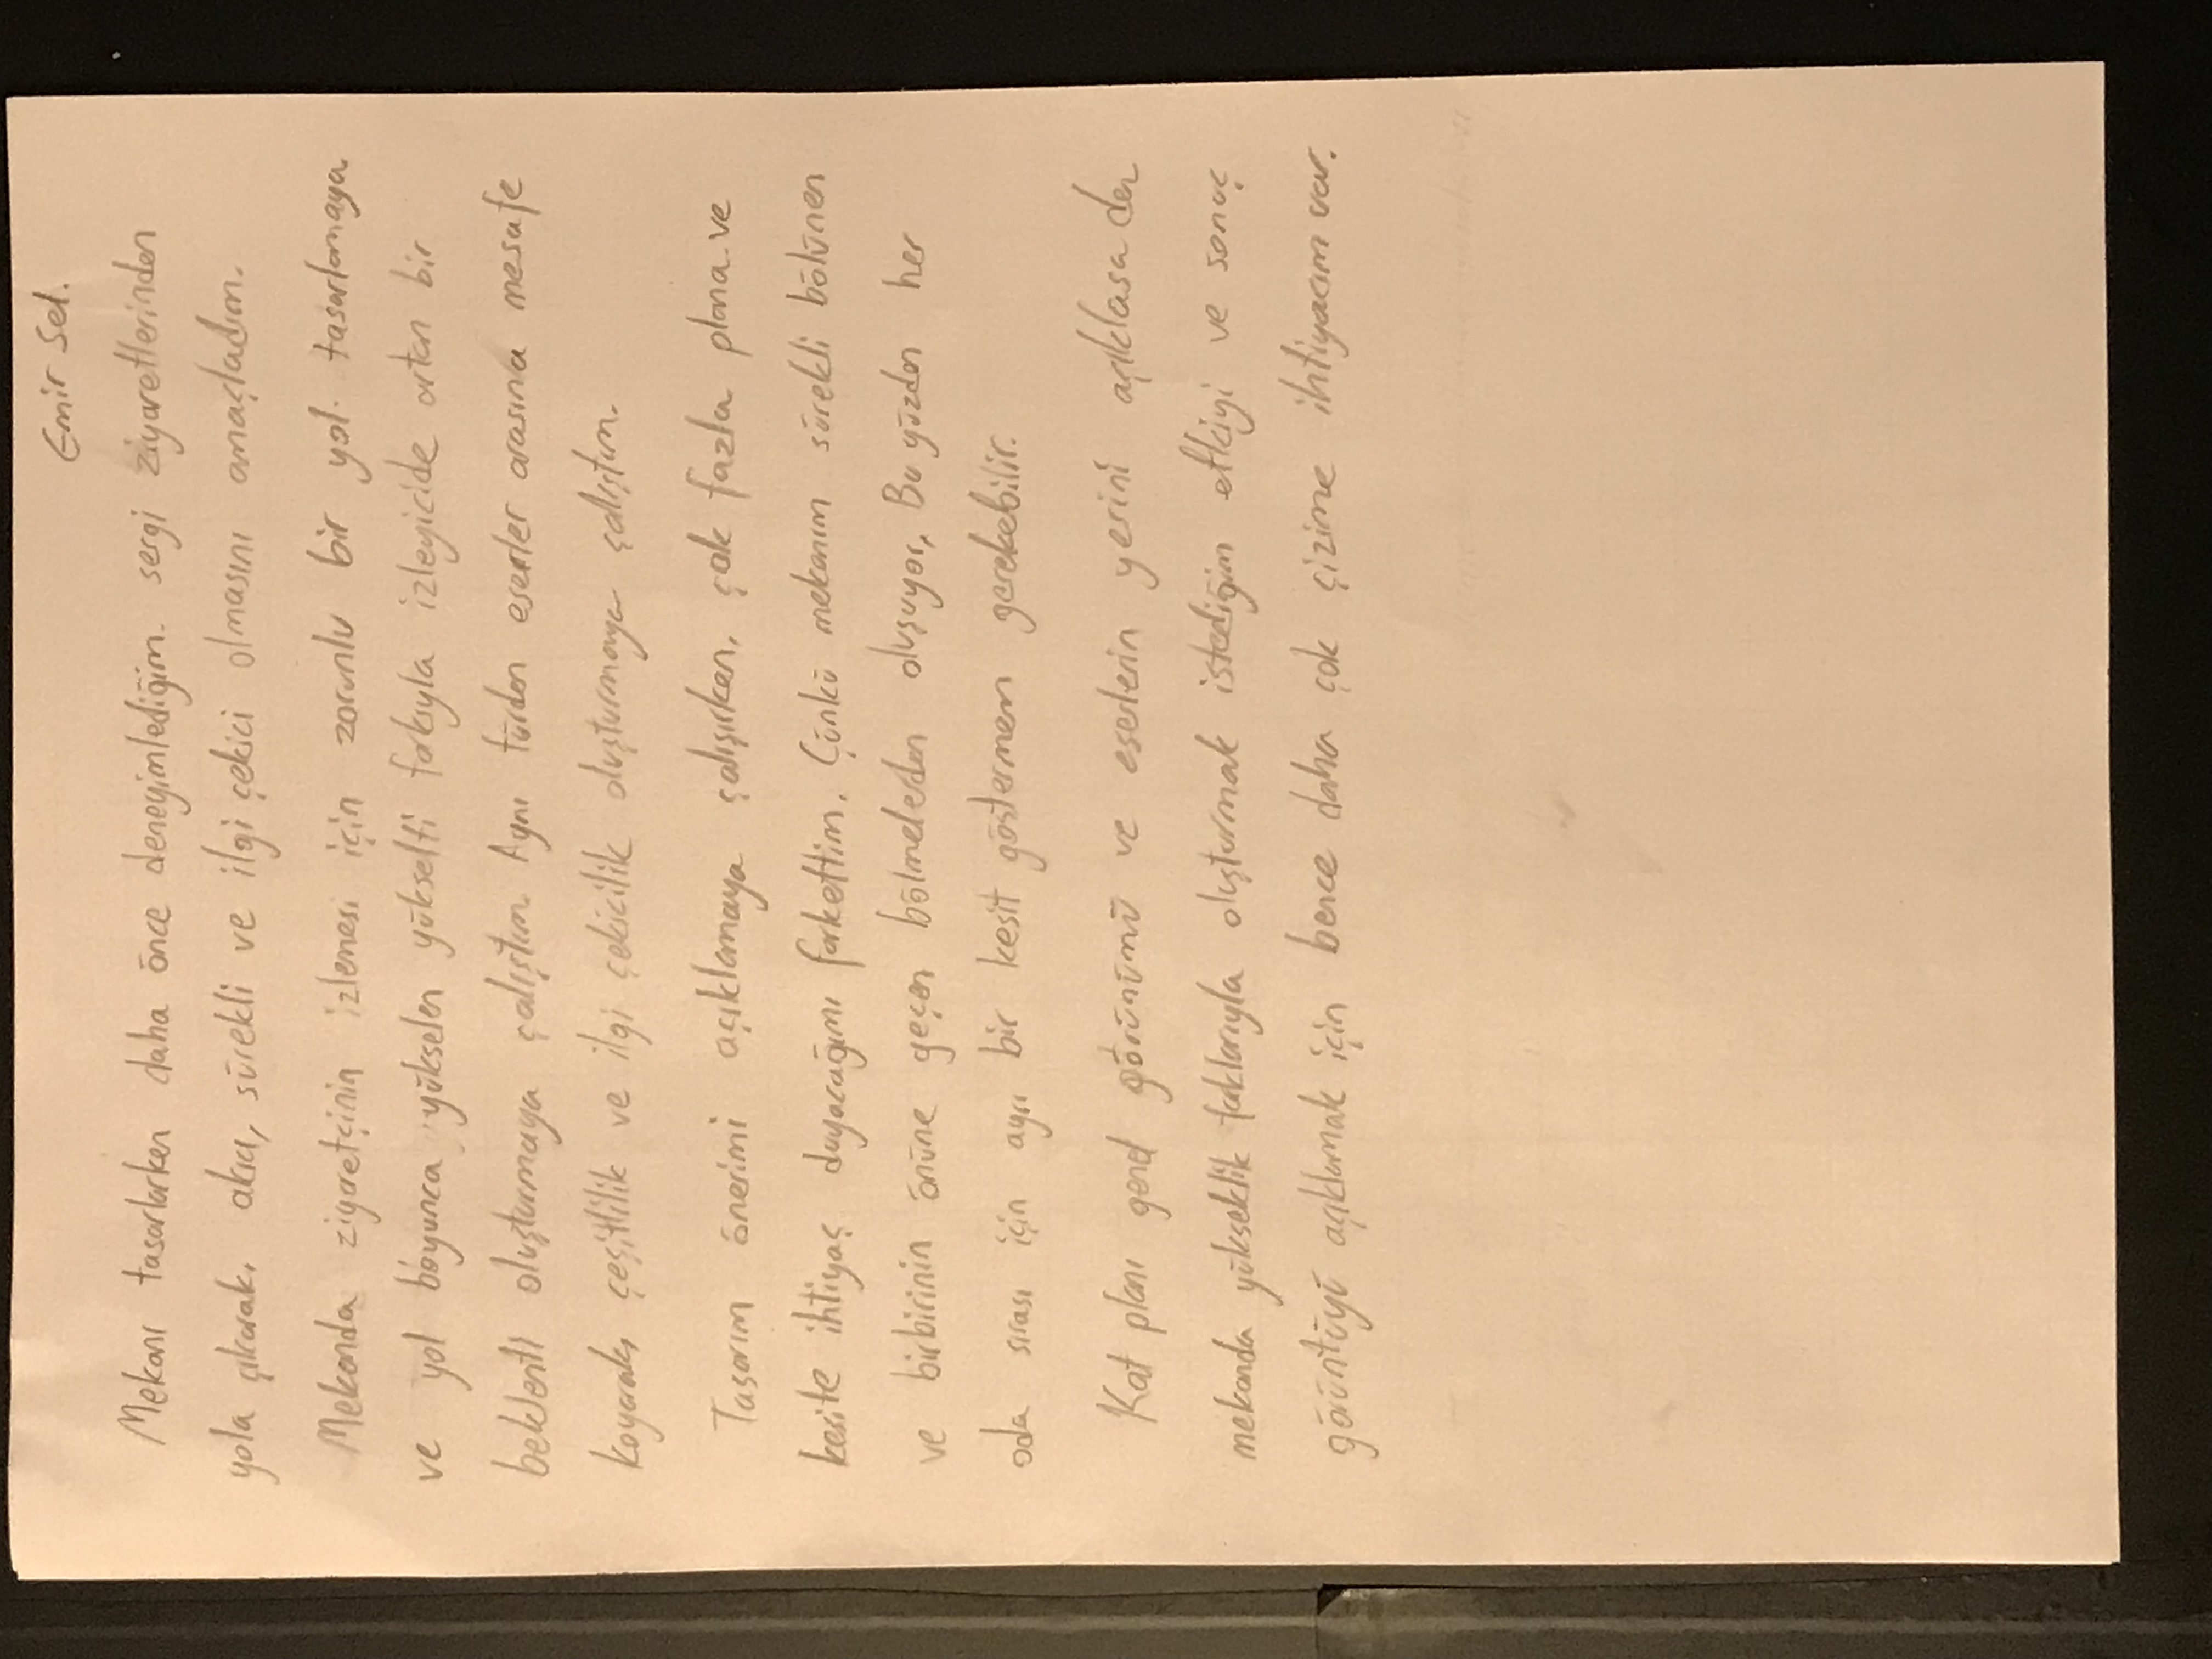 Emir Sel.
Mekanı tasarlarken daha önce deneyimlediğim sergi ziyaretlerinden
yola çıkarak, akıcı, sürekli ve ilgi çekici olmasını amaçladım.
Mekanda ziyaretçinin izlemesi için zorunlu bir yol tasarlamaya
ve yol boyunca yükselen yükselti farkıyla izleyicide artan bir
beklenti oluşturmaya çalıştım. Aynı türden eserler arasına mesafe
koyarak, çeşitlilik ve ilgi çekicilik oluşturmaya çalıştım.
Tasarım önerimi açıklamaya çalışırken, çok fazla plana ve
kesite ihtiyaç duyacağımı farkettim. Çünkü mekanım sürekli bölünen
ve birbirinin önüne geçen bölmelerden oluşuyor. Bu yüzden her
oda sırası için ayrı bir kesit göstermem gerekebilir.
Kat planı genel görünümü ve eserlerin yerini açıklasa da
mekanda yükseklik farklarıyla oluşturmak istediğim etkiyi ve sonuç
görüntüyü açıklamak için bence daha çok çizime ihtiyacım var.